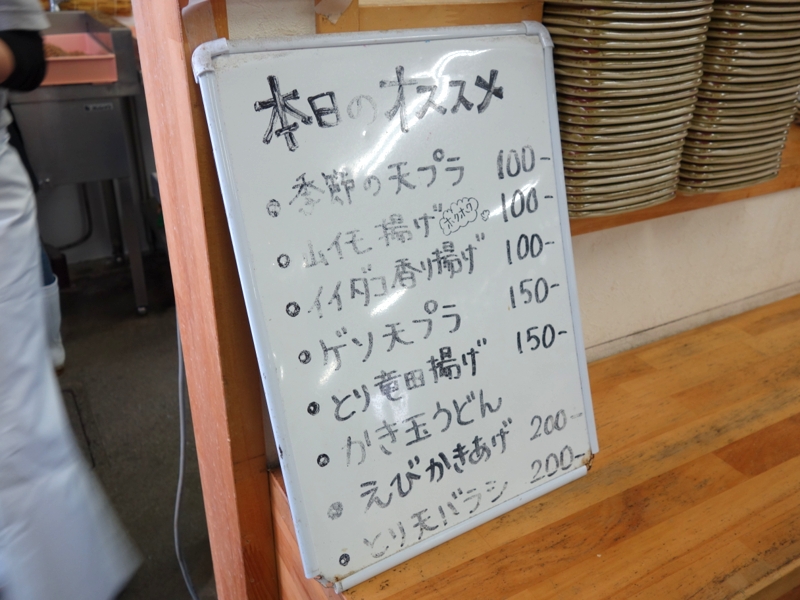 本日のオススメ
季節の天プラ 100-
山イモ揚げ ホクホク 100-
イイダコ香り揚げ 100-
ゲソ天プラ 150-
とり竜田揚げ 150-
かき玉うどん
えびかきあげ 200-
とり天バラシ 200-